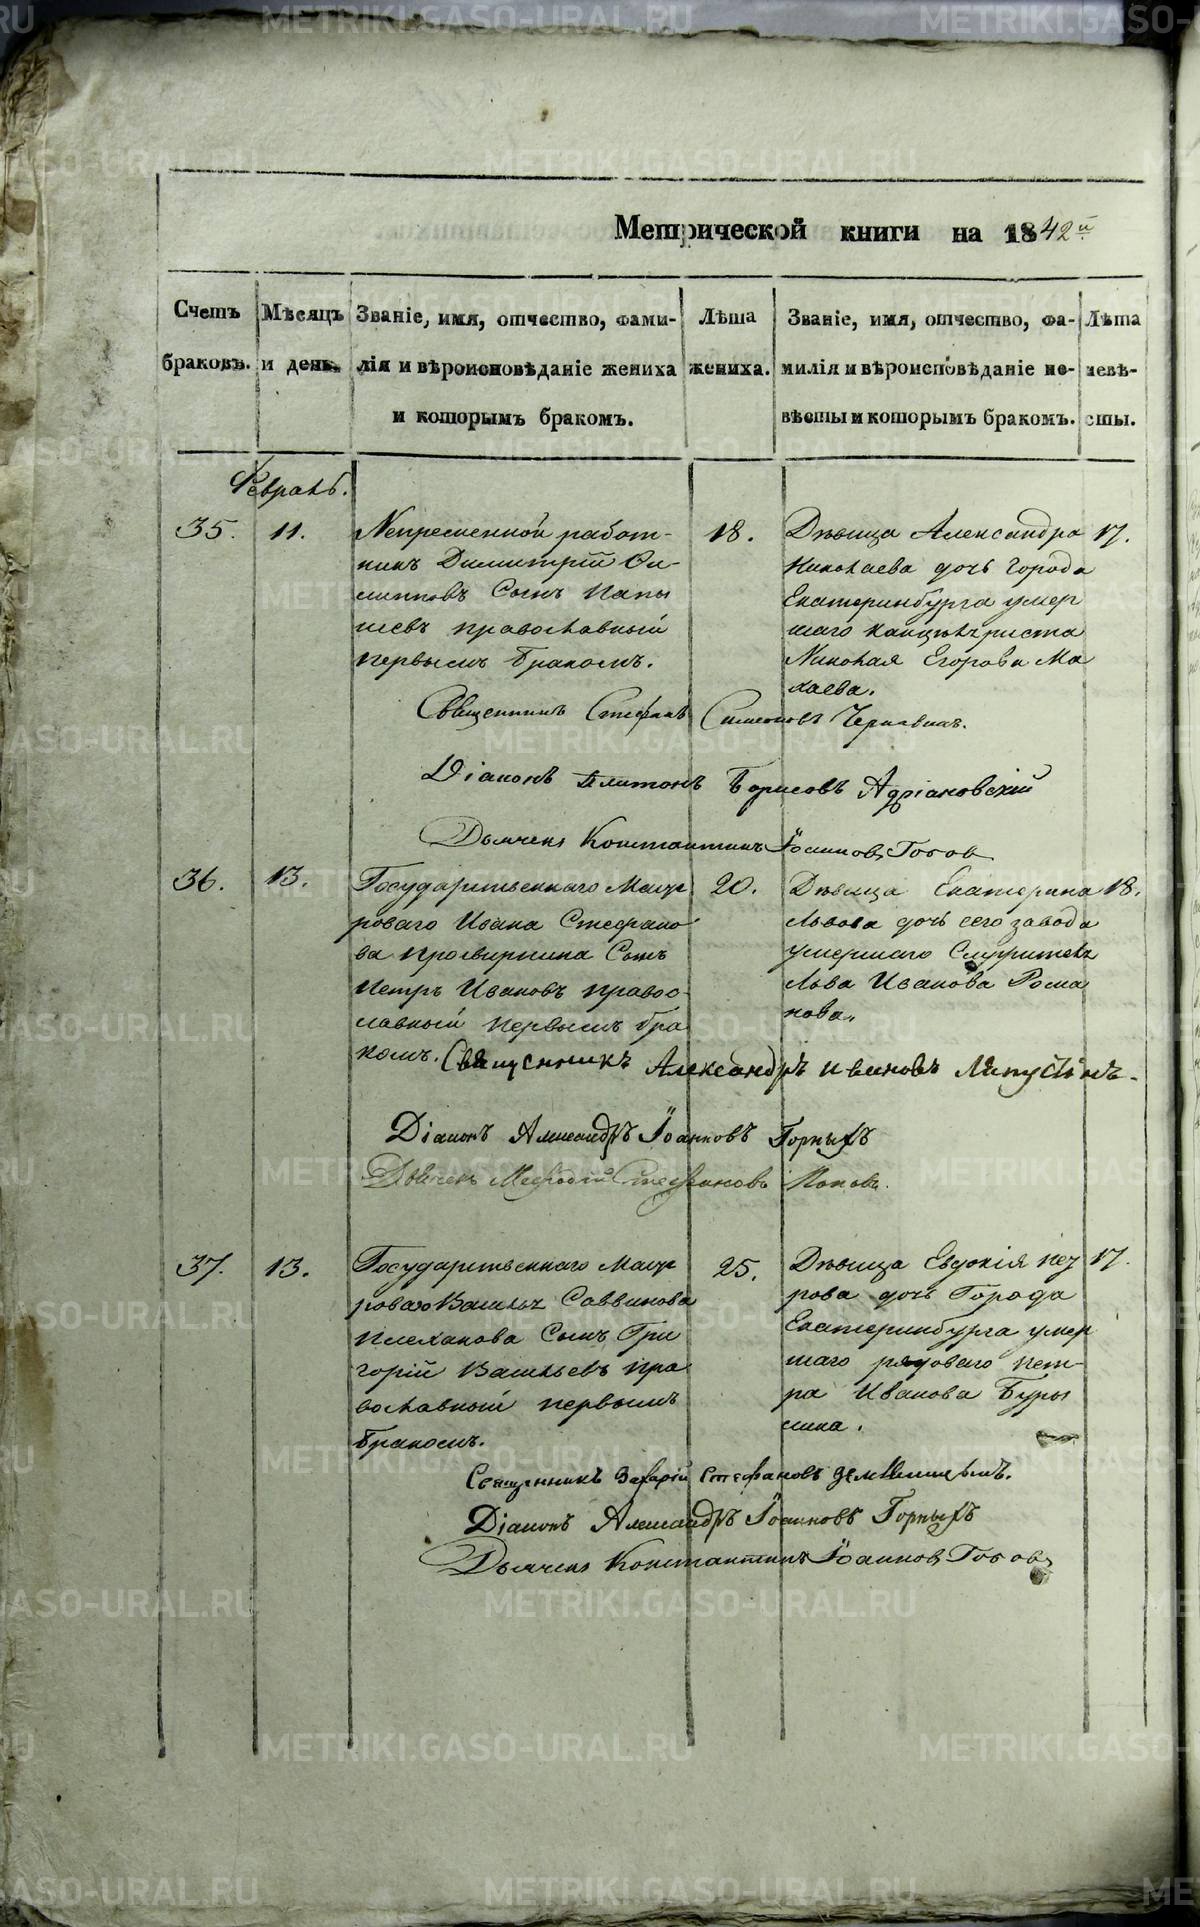 Метрической книги на 1842й
Счетъ браковъ.
Мѣсяцъ и день.
Званіе, имя, отчество, фами-
лія и вѣроисповѣданіе жениха
и которымъ бракомъ.
Лѣта жениха.
Званіе, имя, отчество, фа-
милія и вѣроисповѣданіе не-
вѣсты и которымъ бракомъ.
Лѣта невѣ-
сты.
Февраль.
35. 11.
Непременной работ-
никъ Димитрій Фи-
липповъ Сынъ Папы
шевъ православный
первымъ бракомъ.
18.
Дѣвица Александра
Николаева дочь города
Екатеринбурга умер
шаго канцеляриста
Николая Егорова Ма
каева.
17.
Священникъ Стефанъ Симеоновъ Чернавинъ.
Діаконъ Платонъ Борисовъ Адріановскій
Дьячекъ Константинъ Іоанновъ Топовъ
36. 13.
Государственнаго Масте
роваго Ивана Стефано
ва просвирнина Сынъ
Петръ Ивановъ правос-
лавный первымъ бра
комъ.
20.
Дѣвица Екатерина
Львова дочь сего завода
умершаго Служителя
Льва Иванова Рома
нова.
18.
Священникъ Александръ Ивановъ Лапустинъ.
Діаконъ Александръ Іоанновъ Горныхъ
Дьячекъ Мефодій Стефановъ Поповъ.
37. 13.
Государственнаго Масте
роваго Василья Саввинова
Плеханова Сынъ Гри
горій Васильевъ пра
вославный первымъ
бракомъ.
25.
Дѣвица Евдокія пет
рова дочь Города
Екатеринбурга умер
шаго рядоваго пет-
ра Иванова Буры
лина.
17.
Священникъ Захарій Стефановъ
Діаконъ Александръ Іоанновъ Горныхъ
Дьячекъ Константинъ Іоанновъ Топовъ
METRIKI.GASO-URAL.RU